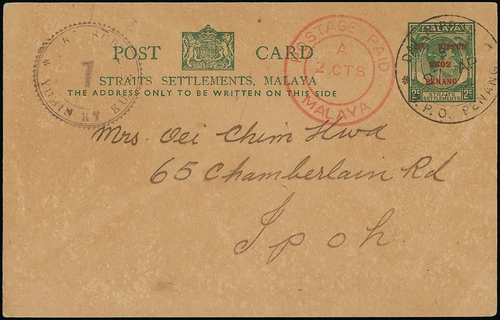 POST CARD
STRAITS SETTLEMENTS, MALAYA
THE ADDRESS ONLY TO BE WRITTEN ON THIS SIDE
POSTAGE PAID
A
2 CTS
MALAYA
MALAYA
2602
PENANG
STRAITS SETTLEMENTS
2c
G.P.O. PENANG
1
Mrs. Oei Chim Hwa
65 Chamberlain Rd
Ipoh.